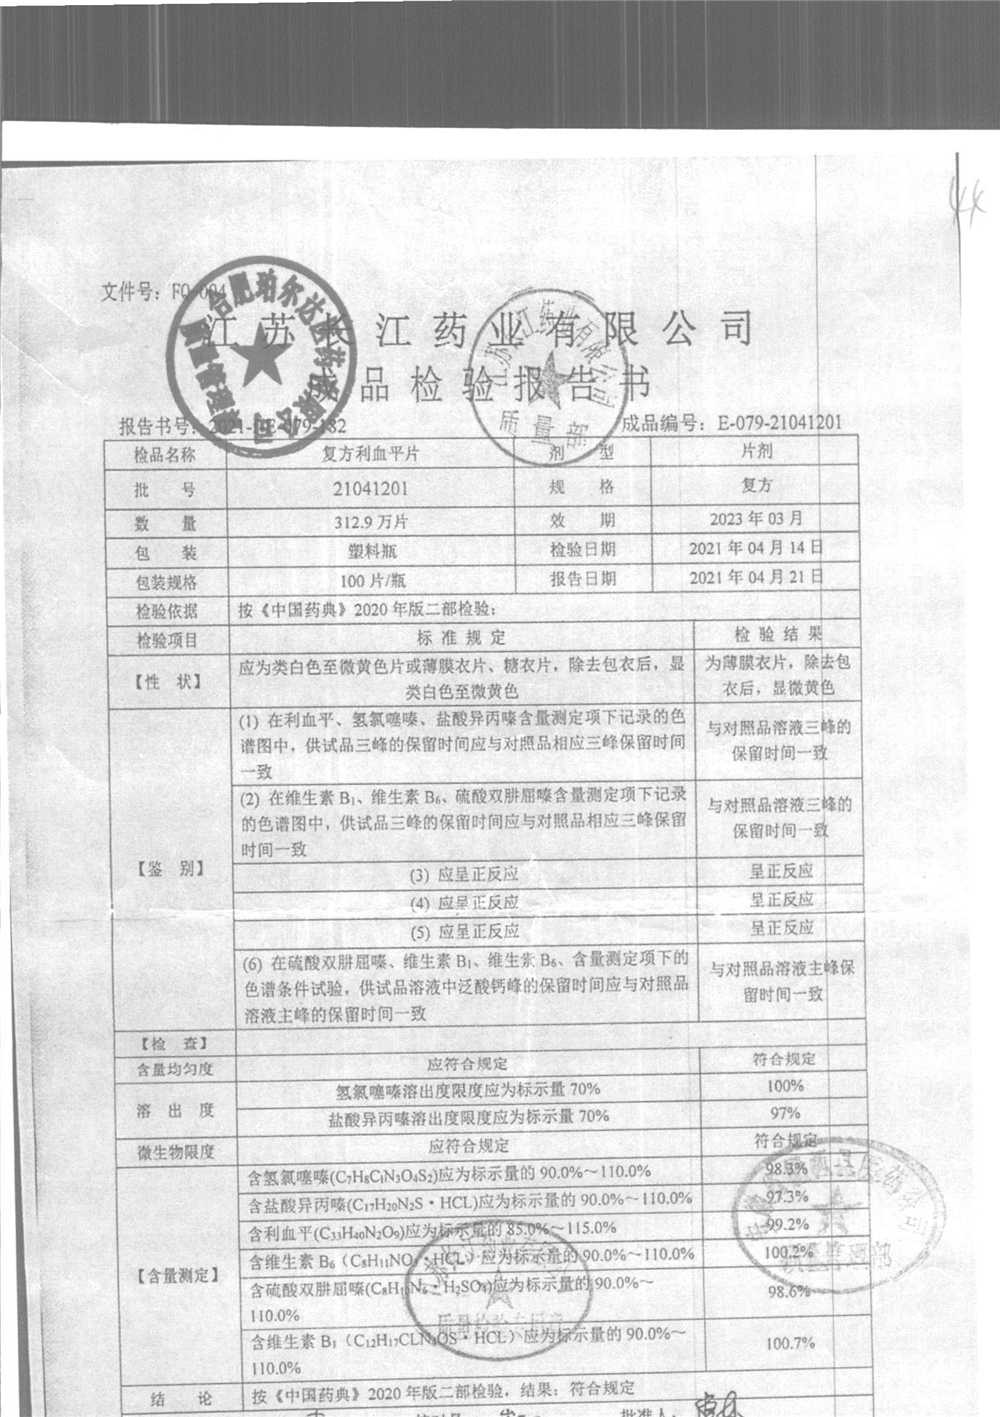 44
文件号：FQ-004
江苏长江药业有限公司
成品检验报告书
报告书号：2021- E-079-182 成品编号：E-079-21041201
检品名称 复方利血平片 剂 型 片剂
批 号 21041201 规 格 复方
数 量 312.9 万片 效 期 2023 年 03 月
包 装 塑料瓶 检验日期 2021 年 04 月 14 日
包装规格 100 片/瓶 报告日期 2021 年 04 月 21 日
检验依据 按《中国药典》2020 年版二部检验：
检验项目 标 准 规 定 检 验 结 果
【性 状】 应为类白色至微黄色片或薄膜衣片、糖衣片，除去包衣后，显 为薄膜衣片，除去包
类白色至微黄色 衣后，显微黄色
【鉴 别】
(1) 在利血平、氢氯噻嗪、盐酸异丙嗪含量测定项下记录的色 与对照品溶液三峰的
谱图中，供试品三峰的保留时间应与对照品相应三峰保留时间 保留时间一致
一致
(2) 在维生素 B₁、维生素 B₆、硫酸双肼屈嗪含量测定项下记录 与对照品溶液三峰的
的色谱图中，供试品三峰的保留时间应与对照品相应三峰保留 保留时间一致
时间一致
(3) 应呈正反应 呈正反应
(4) 应呈正反应 呈正反应
(5) 应呈正反应 呈正反应
(6) 在硫酸双肼屈嗪、维生素 B₁、维生素 B₆、含量测定项下的 与对照品溶液主峰保
色谱条件试验，供试品溶液中泛酸钙峰的保留时间应与对照品 留时间一致
溶液主峰的保留时间一致
【检 查】
含量均匀度 应符合规定 符合规定
溶 出 度 氢氯噻嗪溶出度限度应为标示量 70% 100%
盐酸异丙嗪溶出度限度应为标示量 70% 97%
微生物限度 应符合规定 符合规定
【含量测定】
含氢氯噻嗪(C₇H₈CₗN₃O₄S₂)应为标示量的 90.0%～110.0% 98.3%
含盐酸异丙嗪(C₁₇H₂₀N₂S·HCL)应为标示量的 90.0%～110.0% 97.3%
含利血平(C₃₃H₄₀N₂O₉)应为标示量的 85.0%～115.0% 99.2%
含维生素 B₆（C₈H₁₁NO₃·HCL）应为标示量的 90.0%～110.0% 100.2%
含硫酸双肼屈嗪(C₈H₁₀N₆·H₂SO₄)应为标示量的 90.0%～ 98.6%
110.0%
含维生素 B₁（C₁₂H₁₇CLN₄OS·HCL）应为标示量的 90.0%～ 100.7%
110.0%
结 论 按《中国药典》2020 年版二部检验，结果：符合规定
批准人：
江苏长江药业有限公司
质量部